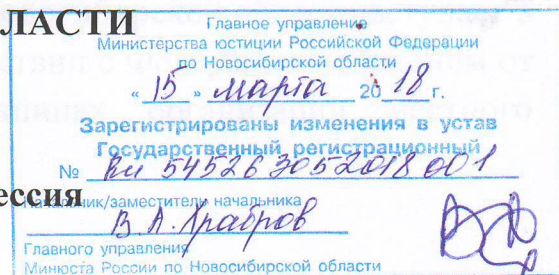 ЛАСТИ
Главное управление
Министерства юстиции Российской Федерации
по Новосибирской области
« 15 » марта 20 18 г.
Зарегистрированы изменения в устав
Государственный регистрационный
№ Ru 545263052018001
ессия
Начальник/заместитель начальника
В.А.
Главного управления
Минюста России по Новосибирской области